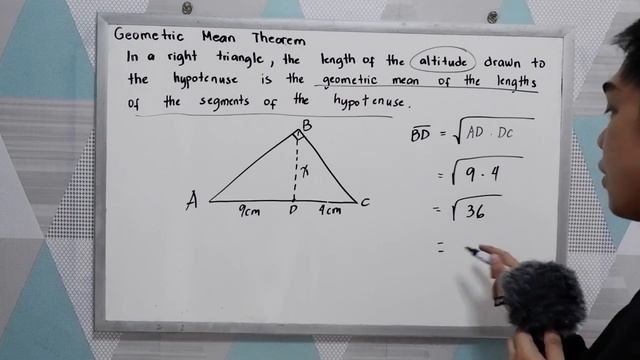 Geometric Mean Theorem
In a right triangle, the length of the altitude drawn to
the hypotenuse is the geometric mean of the lengths
of the segments of the hypotenuse.
B
BD = √AD · DC
x
= √9 · 4
A
C
9cm D 4cm
= √36
=